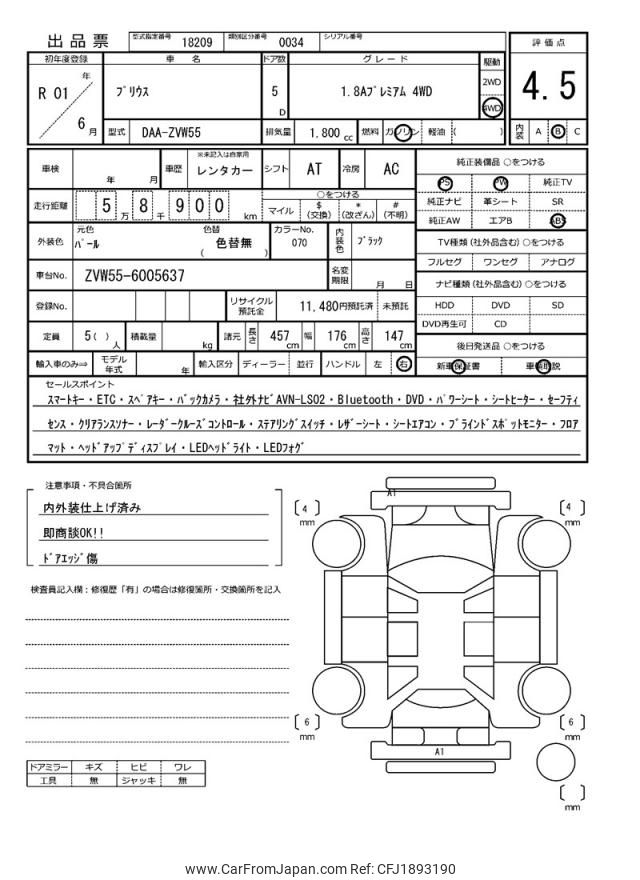 出品票 型式指定番号 18209 類別区分番号 0034 シリアル番号
初年度登録 車 名 ドア数 グレード 駆動 評価点
R 01 年 6 月 プリウス 5 D 1.8Aプレミアム 4WD 2WD 4WD 4.5
型式 DAA-ZVW55 排気量 1,800 cc 燃料 ガソリン 軽油 ( ) 内装 A B C
車検 年 月 車歴 ※未記入は自家用 レンタカー シフト AT 冷房 AC
走行距離 5 万 8 千 9 0 0 km ○をつける マイル $ (交換) * (改ざん) # (不明)
外装色 元色 パール 色替 色替無 ( ) カラーNo. 070 内装色 ブラック
車台No. ZVW55-6005637 名変期限 月 日
登録No. リサイクル預託金 11,480円預託済 未預託
定員 5( ) 人 積載量 kg 諸元 長さ 457 cm 幅 176 cm 高さ 147 cm
輸入車のみ⇒ モデル年式 年 輸入区分 ディーラー 並行 ハンドル 左 右
純正装備品 ○をつける
PS PW 純正TV
純正ナビ 革シート SR
純正AW エアB ABS
TV種類 (社外品含む) ○をつける
フルセグ ワンセグ アナログ
ナビ種類 (社外品含む) ○をつける
HDD DVD SD
DVD再生可 CD
後日発送品 ○をつける
新車保証書 車輌取説
セールスポイント
スマートキー・ETC・スペアキー・バックカメラ・社外ナビAVN-LS02・Bluetooth・DVD・パワーシート・シートヒーター・セーフティ
センス・クリアランスソナー・レーダークルーズコントロール・ステアリングスイッチ・レザーシート・シートエアコン・ブラインドスポットモニター・フロア
マット・ヘッドアップディスプレイ・LEDヘッドライト・LEDフォグ
注意事項・不具合箇所
内外装仕上げ済み
即商談OK!!
ドアエッジ傷
検査員記入欄：修復歴「有」の場合は修復箇所・交換箇所を記入
ドアミラー キズ ヒビ ワレ
工具 無 ジャッキ 無
A1
4 mm
4 mm
6 mm
6 mm
A1
mm
www.CarFromJapan.com Ref: CFJ1893190